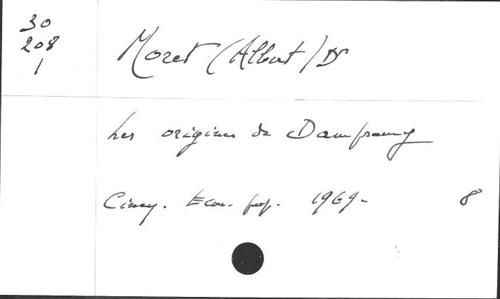 30
208
1
Moret (Albert) Dr
Les origines de Damfreney
Ciney. Econ. prof. 1969-
8